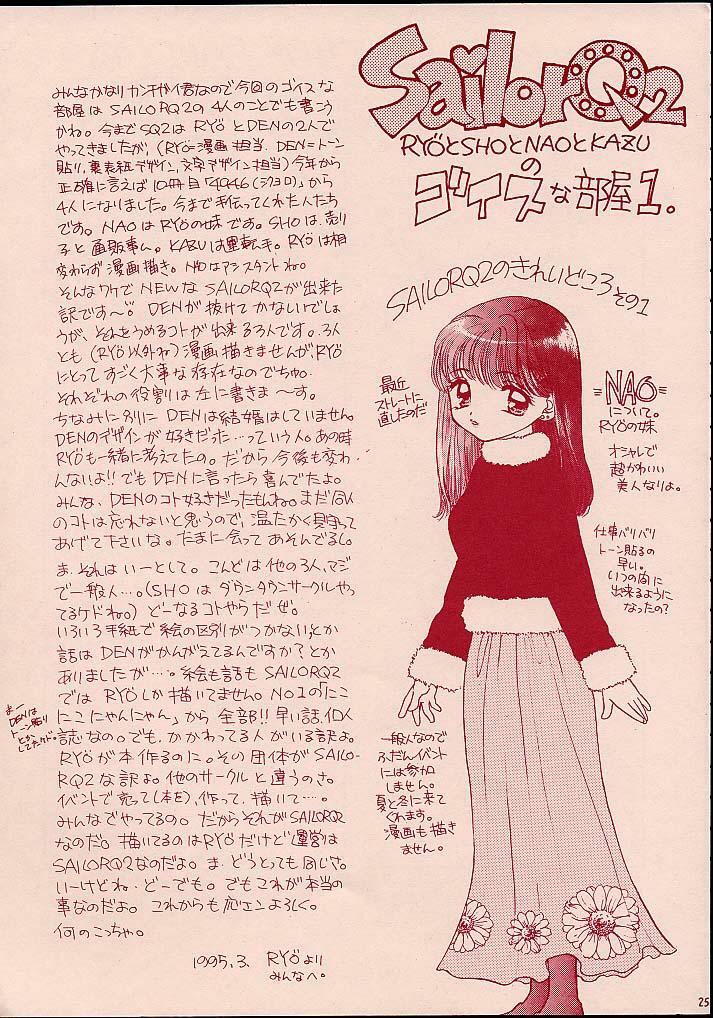 SailorQ2
RYÖとSHOとNAOとKAZU
の
ゴイスな部屋1。
みんなかなりカンチガイ君なので今回のゴイスな
部屋はSAILORQ2の4人のことでも書こう
かね。今までSQ2はRYÖとDENの2人で
やってきましたが、(RYÖ=漫画担当 DEN=トーン
貼り、裏表紙デザイン、文字デザイン担当)今年から
正確に言えば10冊目「4946(シクヨロ)」から
4人になりました。今まで手伝ってくれた人たち
です。NAOはRYÖの妹です。SHOは、売り
子と通販事ム。KAZUは運転手。RYÖは相
変わらず漫画描き。NAOはアシスタントね。
そんなワケでNEWなSAILORQ2が出来た
訳です〜。DENが抜けてかないでしょ
うが、それをうめるコトが出来る3人です。3人
とも(RYÖ以外ね)漫画描きませんがRYÖ
にとってすごく大事な存在なのでちゅ。
それぞれの役割りは左に書きま〜す。
ちなみに別にDENは結婚はしていません。
DENのデザインが好きだった…っていう人。あの時
RYÖも一緒に考えてたの。だから今後も変わ
んないよ!!でもDENに言ったら喜んでたよ。
みんな、DENのコト好きだったもんね。まだDEN
のコトは忘れないと思うので、温たかく見守って
あげて下さいな。たまに会ってあそんでるし。
ま、それはいーとして。こんどは他の3人、マジ
で一般人…。(SHOはダウンタウンサークルやっ
てるケドねo)どーなるコトやらだぜ。
いろいろ手紙で絵の区別がつかない、とか
話はDENがかんがえてるんですか?とか
ありましたが…。絵も話もSAILORQ2
ではRYÖしか描いてません。NO1の「にこ
にこにゃんにゃん」から全部!!早い話、個人
誌なの。でも、かかわってる人がいる訳よ。
RYÖが本作るのに。その団体がSAILO-
RQ2な訳よ。他のサークルと違うのさ。
イベントで売って(本を)、作って、描いて…。
みんなでやってるの。だからそれがSAILORQ2
なのだ。描いてるのはRYÖだけど運営は
SAILORQ2なのだよ。ま、どうとっても同じさ。
いーけどね。どーでも。でもこれが本当の
事なのだよ。これからも応エンよろしく。
何のこっちゃ。
1995.3. RYÖより
みんなへ。
まー
DENは
トーン貼り
とか
してたケド。
SAILORQ2のきれいどころその1
最近
ストレートに
直したのだ
=NAO=
について。
RYÖの妹
オシャレで
超かわいい
美人なりよ。
仕事バリバリ
トーン貼るの
早い。
いつの間に
出来るように
なったの?
一般人なので
ふだんイベント
には参加
しません。
夏と冬に来て
くれます。
漫画も描き
ません。
25